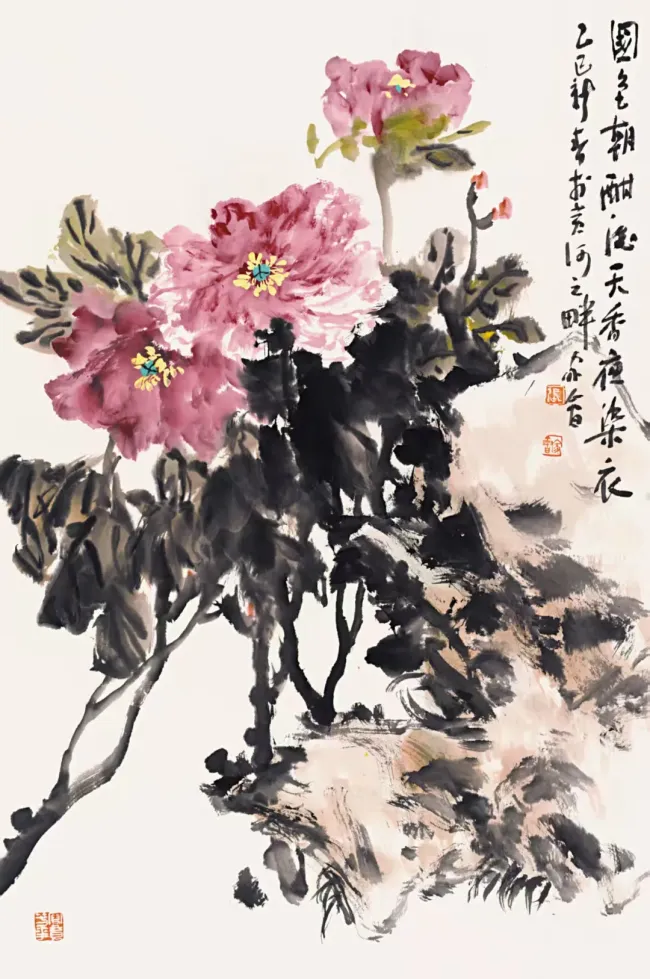 國色朝酣酒天香夜染衣
乙巳新春於黄河之畔